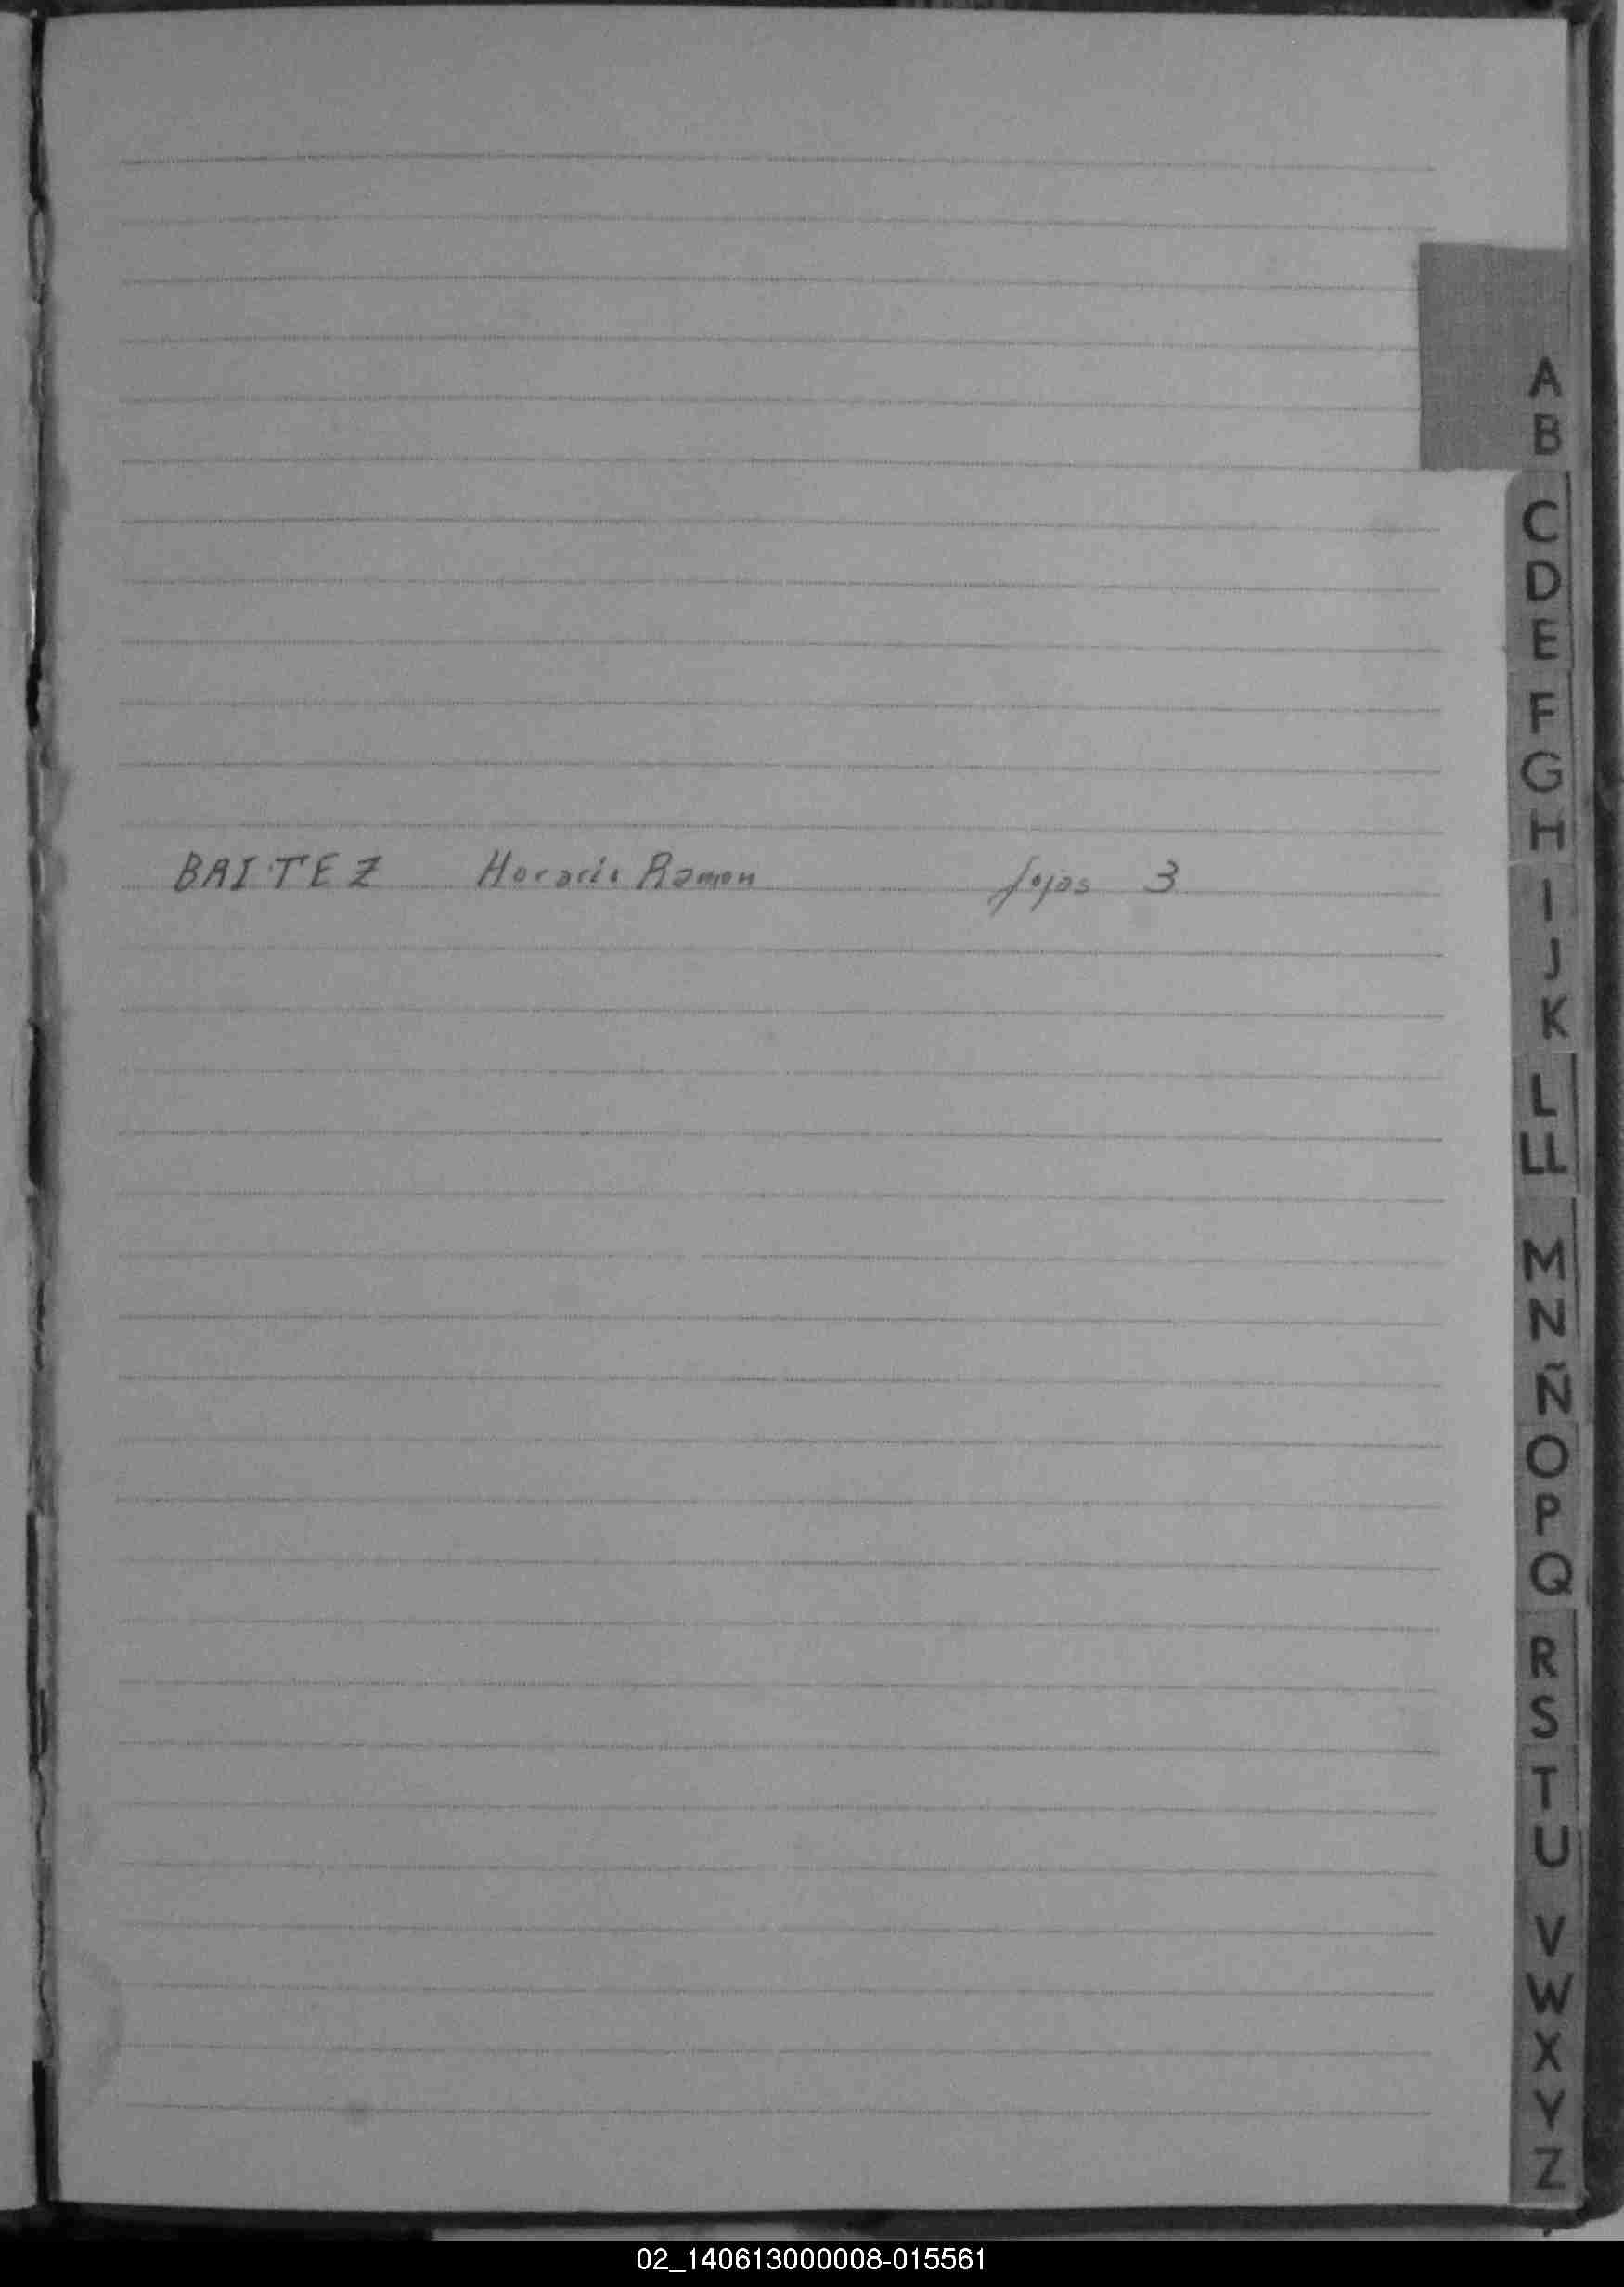 A
B
C
D
E
F
G
H
BAITEZ Horacio Ramon fojas 3
I
J
K
L
LL
M
N
Ñ
O
P
Q
R
S
T
U
V
W
X
Y
Z
02_140613000008-015561